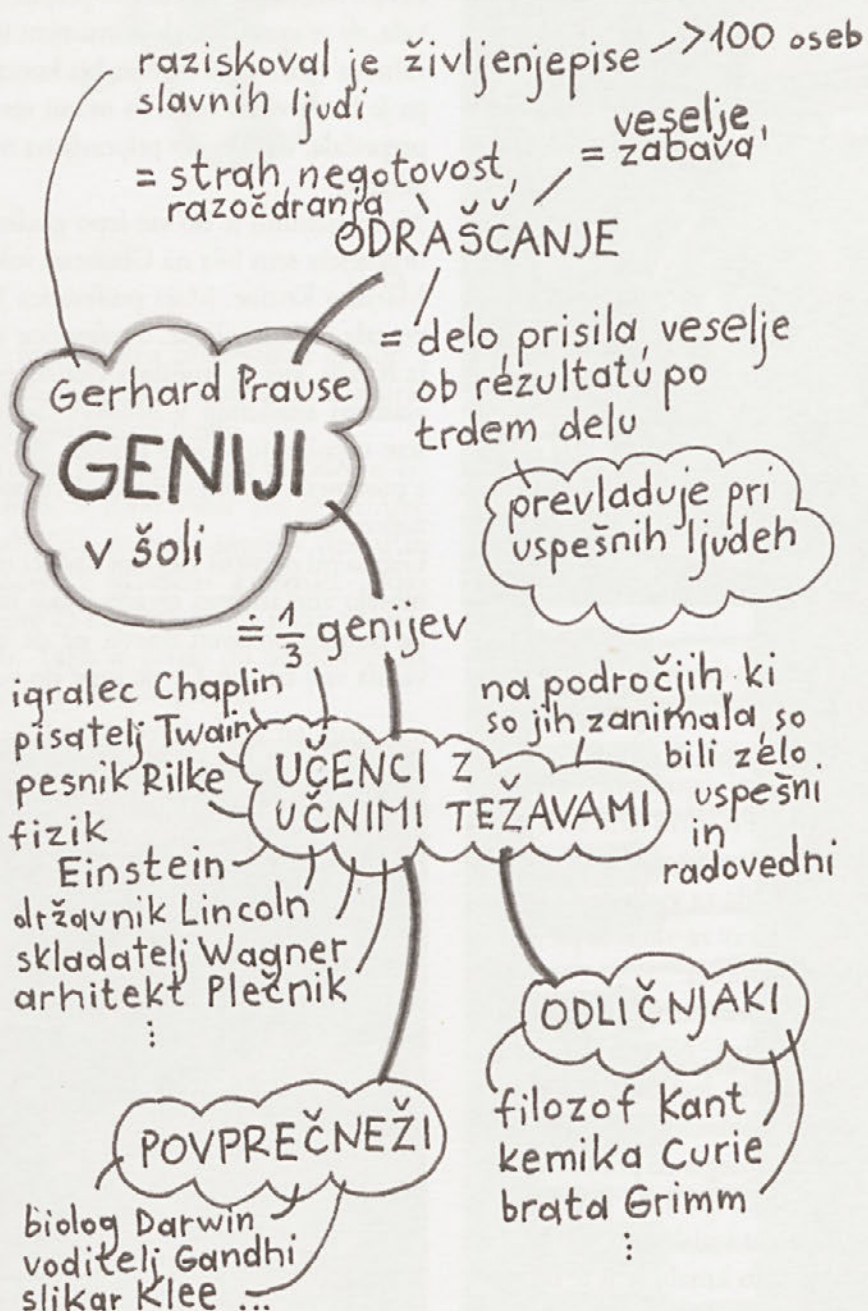 raziskoval je življenjepise →>100 oseb
slavnih ljudi
= veselje,
zabava
= strah, negotovost,
razočdranja
ODRAŠČANJE
= delo, prisila, veselje
ob rezultatu po
trdem delu
prevladuje pri
uspešnih ljudeh
Gerhard Prause
GENIJI
v šoli
≐ 1/3 genijev
igralec Chaplin
pisatelj Twain
pesnik Rilke
fizik
Einstein
državnik Lincoln
skladatelj Wagner
arhitekt Plečnik
⋮
UČENCI Z
UČNIMI TEŽAVAMI
na področjih, ki
so jih zanimala, so
bili zelo
uspešni
in
radovedni
ODLIČNJAKI
filozof Kant
kemika Curie
brata Grimm
⋮
POVPREČNEŽI
biolog Darwin
voditelj Gandhi
slikar Klee ...